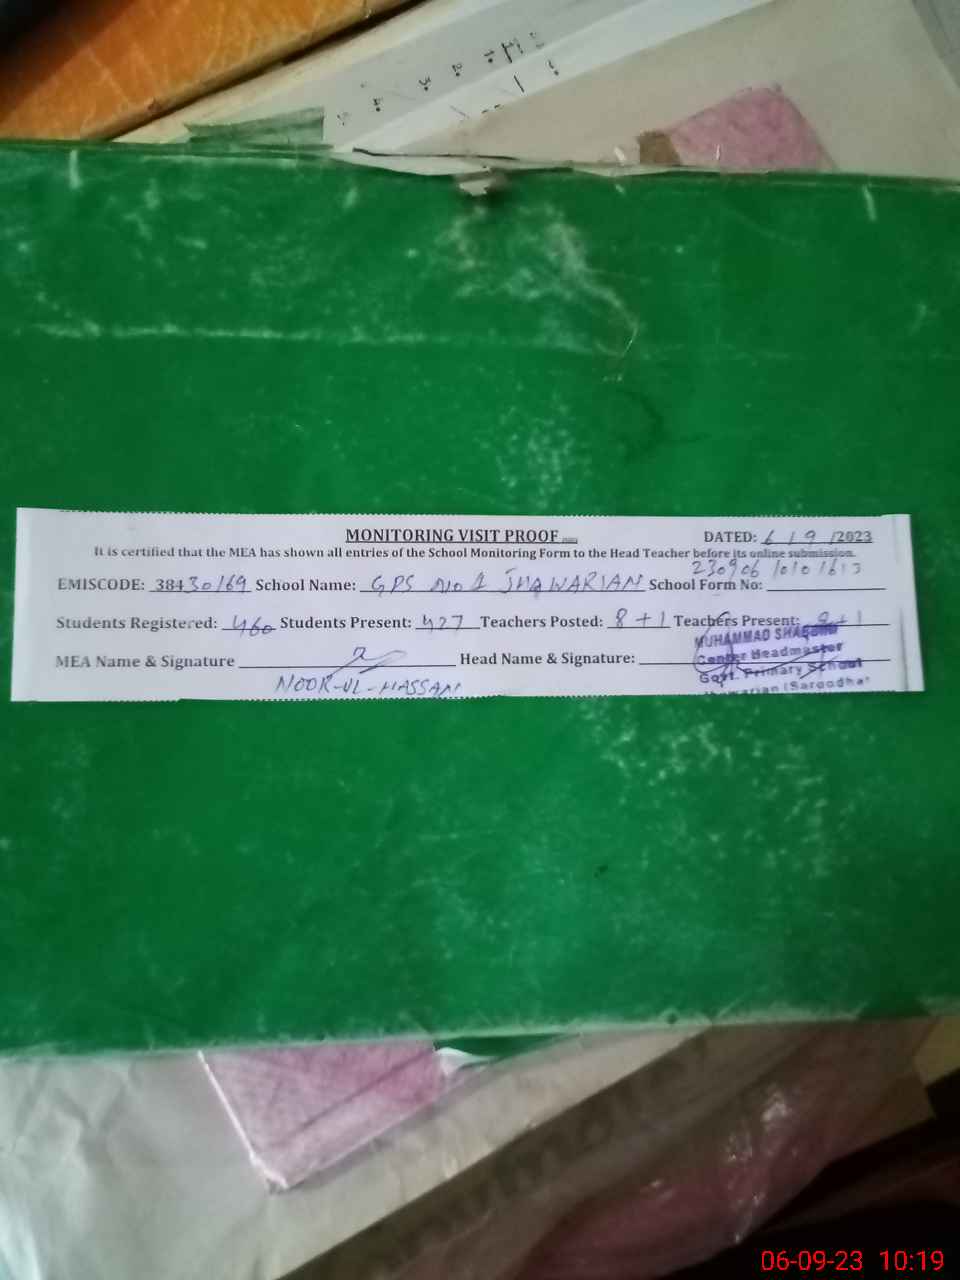 MONITORING VISIT PROOF DATED: 6/9/2023
It is certified that the MEA has shown all entries of the School Monitoring Form to the Head Teacher before its online submission.
230906 10101613
EMISCODE: 38430169 School Name: GPS No 1 JHAWARIAN School Form No:
Students Registered: 460 Students Present: 427 Teachers Posted: 8+1 Teachers Present: 8+1
MUHAMMAD
MEA Name & Signature Head Name & Signature: Center Headmaster
NOOR-UL-HASSAN Govt. Primary School
(Sargodha)
06-09-23 10:19